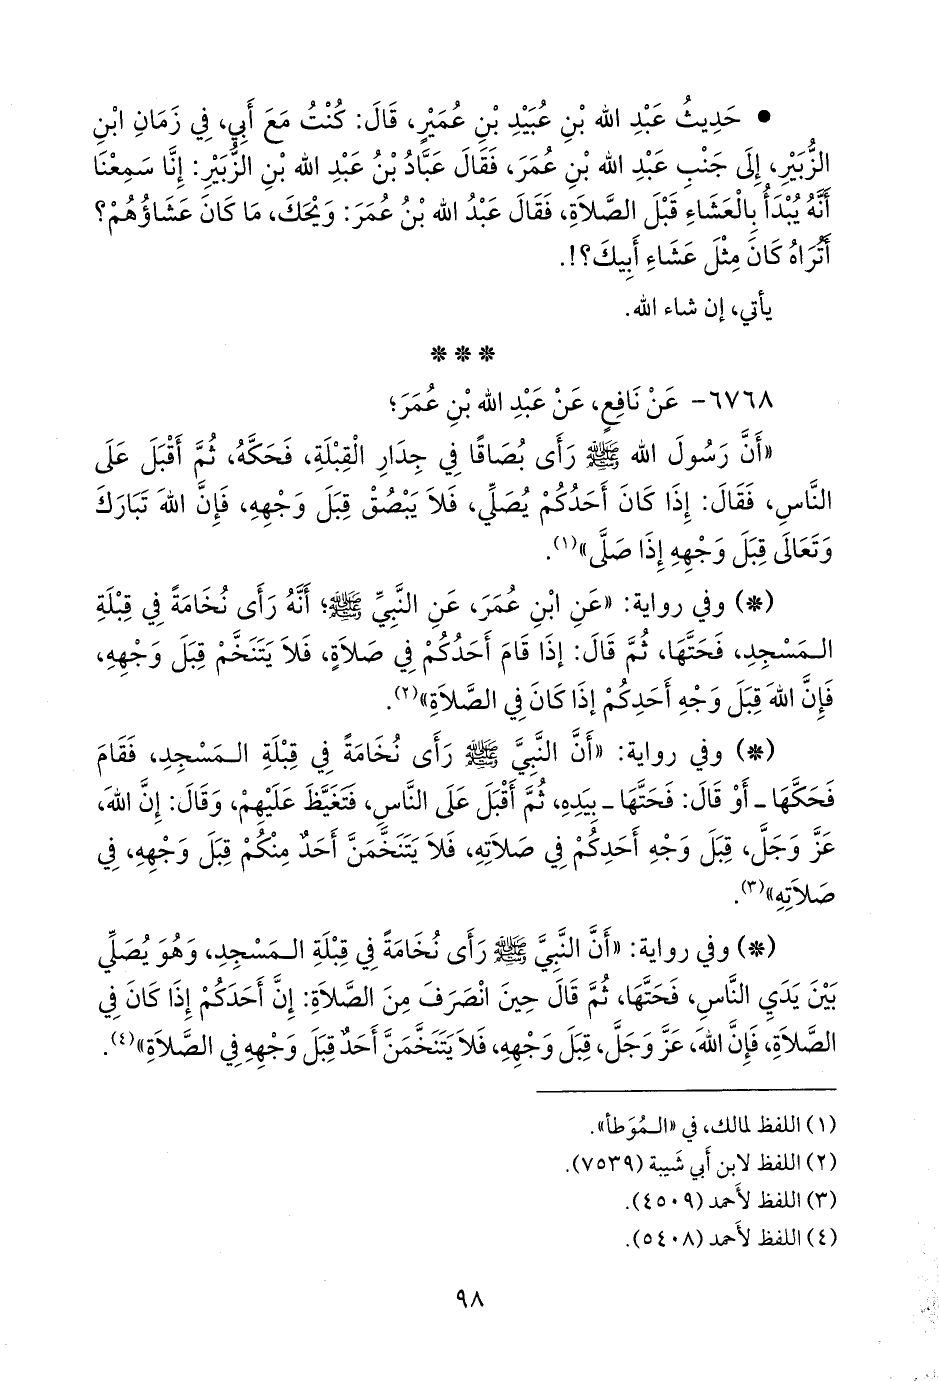 • حَدِيثُ عَبْدِ الله بْنِ عُبَيْدِ بْنِ عُمَيْرٍ، قَالَ: كُنْتُ مَعَ أَبِي، فِي زَمَانِ ابْنِ
الزُّبَيْرِ، إِلَى جَنْبِ عَبْدِ الله بْنِ عُمَرَ، فَقَالَ عَبَّادُ بْنُ عَبْدِ الله بْنِ الزُّبَيْرِ: إِنَّا سَمِعْنَا
أَنَّهُ يُبْدَأُ بِالْعَشَاءِ قَبْلَ الصَّلاَةِ، فَقَالَ عَبْدُ الله بْنُ عُمَرَ: وَيْحَكَ، مَا كَانَ عَشَاؤُهُمْ؟
أَتُرَاهُ كَانَ مِثْلَ عَشَاءِ أَبِيكَ؟!.
يأتي، إن شاء الله.
* * *
٦٧٦٨- عَنْ نَافِعٍ، عَنْ عَبْدِ الله بْنِ عُمَرَ؛
«أَنَّ رَسُولَ الله ﷺ رَأَى بُصَاقًا فِي جِدَارِ الْقِبْلَةِ، فَحَكَّهُ، ثُمَّ أَقْبَلَ عَلَى
النَّاسِ، فَقَالَ: إِذَا كَانَ أَحَدُكُمْ يُصَلِّي، فَلاَ يَبْصُقْ قِبَلَ وَجْهِهِ، فَإِنَّ اللهَ تَبَارَكَ
وَتَعَالَى قِبَلَ وَجْهِهِ إِذَا صَلَّى»(١).
(*) وفي رواية: «عَنِ ابْنِ عُمَرَ، عَنِ النَّبِيِّ ﷺ؛ أَنَّهُ رَأَى نُخَامَةً فِي قِبْلَةِ
الـمَسْجِدِ، فَحَتَّهَا، ثُمَّ قَالَ: إِذَا قَامَ أَحَدُكُمْ فِي صَلاَةٍ، فَلاَ يَتَنَخَّمْ قِبَلَ وَجْهِهِ،
فَإِنَّ اللهَ قِبَلَ وَجْهِ أَحَدِكُمْ إِذَا كَانَ فِي الصَّلاَةِ»(٢).
(*) وفي رواية: «أَنَّ النَّبِيَّ ﷺ رَأَى نُخَامَةً فِي قِبْلَةِ الـمَسْجِدِ، فَقَامَ
فَحَكَّهَا ـ أَوْ قَالَ: فَحَتَّهَا ـ بِيَدِهِ، ثُمَّ أَقْبَلَ عَلَى النَّاسِ، فَتَغَيَّظَ عَلَيْهِمْ، وَقَالَ: إِنَّ اللهَ،
عَزَّ وَجَلَّ، قِبَلَ وَجْهِ أَحَدِكُمْ فِي صَلاَتِهِ، فَلاَ يَتَنَخَّمَنَّ أَحَدٌ مِنْكُمْ قِبَلَ وَجْهِهِ، فِي
صَلاَتِهِ»(٣).
(*) وفي رواية: «أَنَّ النَّبِيَّ ﷺ رَأَى نُخَامَةً فِي قِبْلَةِ الـمَسْجِدِ، وَهُوَ يُصَلِّي
بَيْنَ يَدَيِ النَّاسِ، فَحَتَّهَا، ثُمَّ قَالَ حِينَ انْصَرَفَ مِنَ الصَّلاَةِ: إِنَّ أَحَدَكُمْ إِذَا كَانَ فِي
الصَّلاَةِ، فَإِنَّ اللهَ، عَزَّ وَجَلَّ، قِبَلَ وَجْهِهِ، فَلاَ يَتَنَخَّمَنَّ أَحَدٌ قِبَلَ وَجْهِهِ فِي الصَّلاَةِ»(٤).
(١) اللفظ لمالك، في «الـمُوَطأ».
(٢) اللفظ لابن أبي شَيبة (٧٥٣٩).
(٣) اللفظ لأَحمد (٤٥٠٩).
(٤) اللفظ لأَحمد (٥٤٠٨).
٩٨